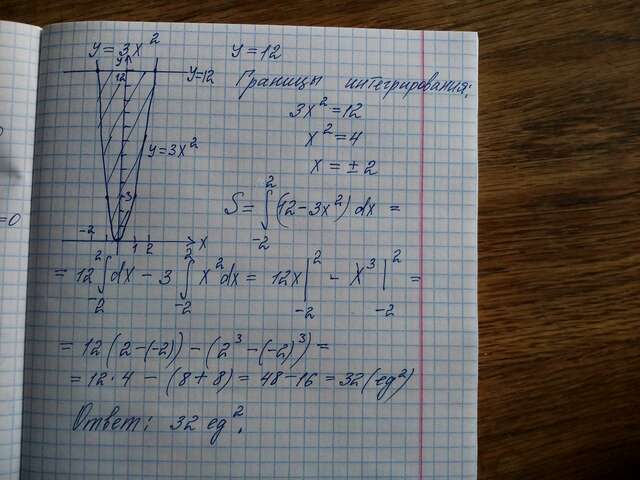 y=3x² y=12
y
12 y=12
Границы интегрирования:
3x²=12
x²=4
y=3x²
x=±2
3
S=∫₋₂²(12-3x²)dx =
-2 1 2 x
= 12∫₋₂²dx - 3∫₋₂²x²dx = 12x|₋₂² - x³|₋₂² =
= 12(2-(-2))-(2³-(-2)³)=
= 12·4 - (8+8) = 48-16 = 32(ед²)
Ответ: 32 ед².
=0